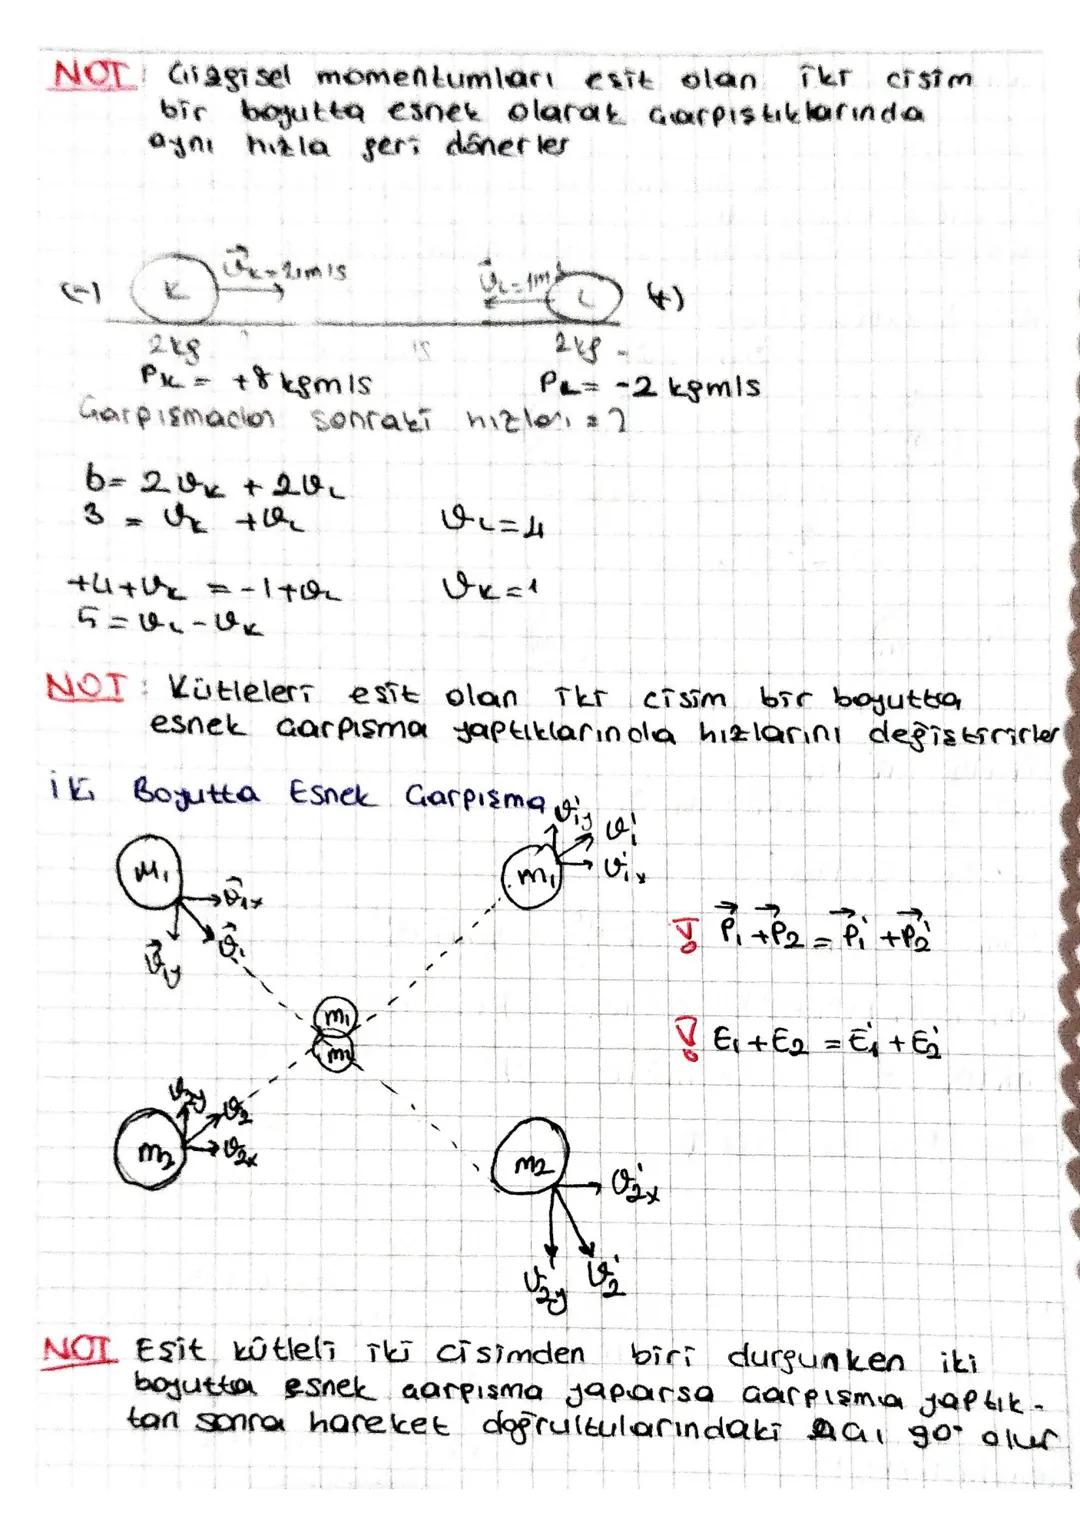 NOT: Çizgisel momentumları eşit olan iki cisim
bir boyutta esnek olarak çarpıştıklarında
aynı hızla geri dönerler
(-) K v⃗K=4m/s v⃗L=1m/s L (+)
2kg 2kg
PK = +8 kgm/s PL = -2 kgm/s
Çarpışmadan sonraki hızları = ?
6 = 2vK + 2vL
3 = vK + vL vL=4
+4+vK = -1+vL vK=-1
5 = vL - vK
NOT: Kütleleri eşit olan iki cisim bir boyutta
esnek çarpışma yaptıklarında hızlarını değiştirirler
İki Boyutta Esnek Çarpışma
v'1y
v'1
m1 m1 v'1x
v⃗1x
v⃗1
v⃗1y
P⃗1 + P⃗2 = P⃗1' + P⃗2'
m1
m2
E1 + E2 = E1' + E2'
v2y
v2
m2 v2x
m2
v'2x
v'2y v'2
NOT Eşit kütleli iki cisimden biri durgunken iki
boyutta esnek çarpışma yaparsa çarpışma yaptık-
tan sonra hareket doğrultularındaki açı 90° olur